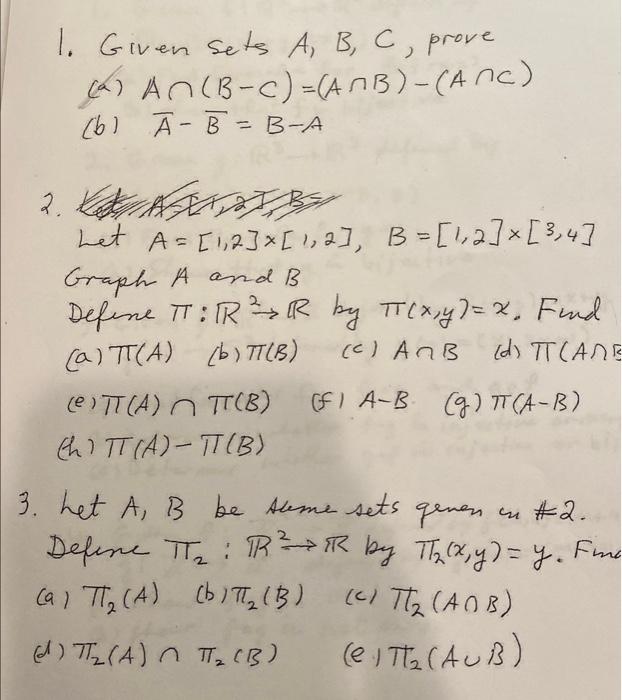 1. Given sets A, B, C, prove
(a) A∩(B-C)=(A∩B)-(A∩C)
(b) A̅ - B̅ = B-A
2.
Let A=[1,2]×[1,2], B=[1,2]×[3,4]
Graph A and B
Define π:ℝ²→ℝ by π(x,y)=x. Find
(a) π(A) (b) π(B) (c) A∩B (d) π(A∩B
(e) π(A) ∩ π(B) (f) A-B. (g) π(A-B)
(h) π(A)-π(B)
3. Let A, B be sets in #2.
Define π₂ : ℝ²→ℝ by π₂(x,y)=y. Find
(a) π₂(A) (b) π₂(B) (c) π₂(A∩B)
(d) π₂(A) ∩ π₂(B) (e) π₂(A∪B)